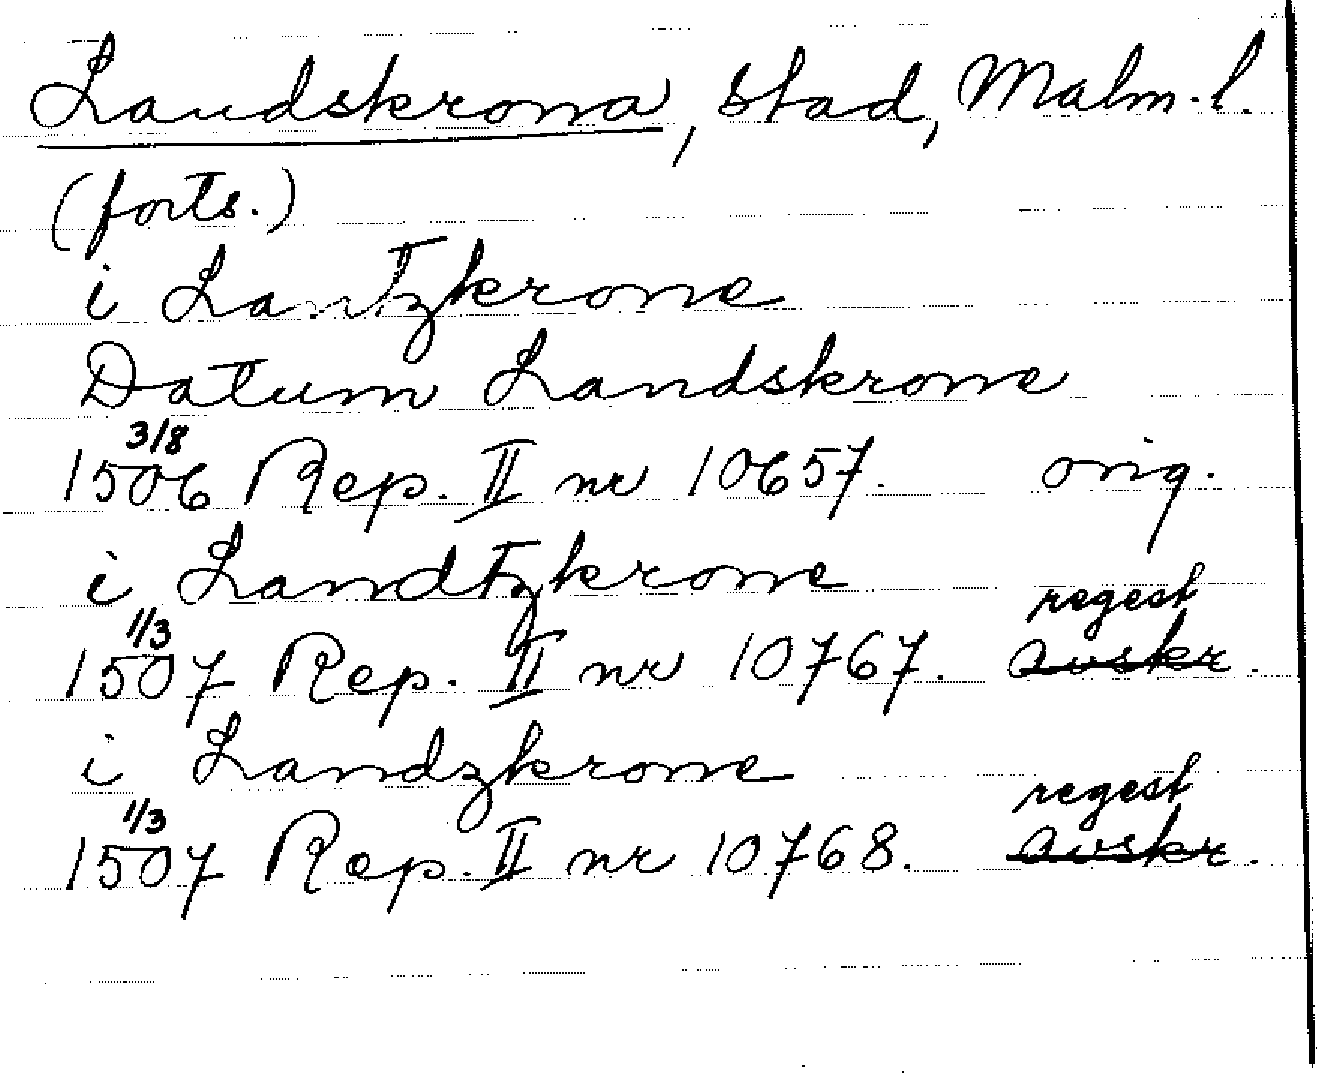 Landskrona, stad, Malm.l.
(forts.)
i Lantzkrone
Datum Landskrone
1506 3/8 Rep. II nr 10657. orig.
i Landtzkrone
1507 1/3 Rep. II nr 10767. regest avskr.
i Landzkrone
1507 1/3 Rep. II nr 10768. regest avskr.